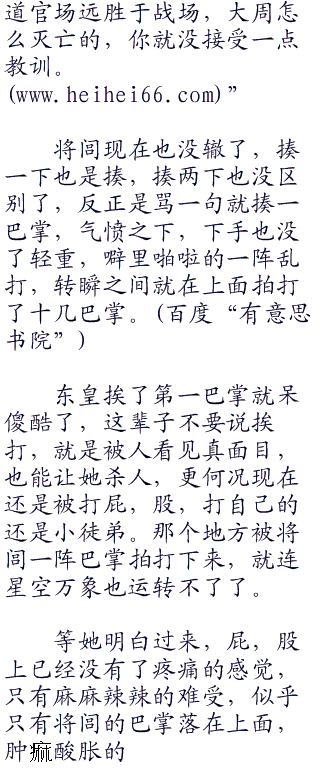 道官场远胜于战场，大周怎
么灭亡的，你就没接受一点
教训。
(www.heihei66.com)”
将闾现在也没辙了，揍
一下也是揍，揍两下也没区
别了，反正是骂一句就揍一
巴掌，气愤之下，下手也没
了轻重，噼里啪啦的一阵乱
打，转瞬之间就在上面拍打
了十几巴掌。(百度“有意思
书院”)
东皇挨了第一巴掌就呆
傻酷了，这辈子不要说挨
打，就是被人看见真面目，
也能让她杀人，更何况现在
还是被打屁，股，打自己的
还是小徒弟。那个地方被将
闾一阵巴掌拍打下来，就连
星空万象也运转不了了。
等她明白过来，屁，股
上已经没有了疼痛的感觉，
只有麻麻辣辣的难受，似乎
只有将闾的巴掌落在上面，
肿痲酸胀的